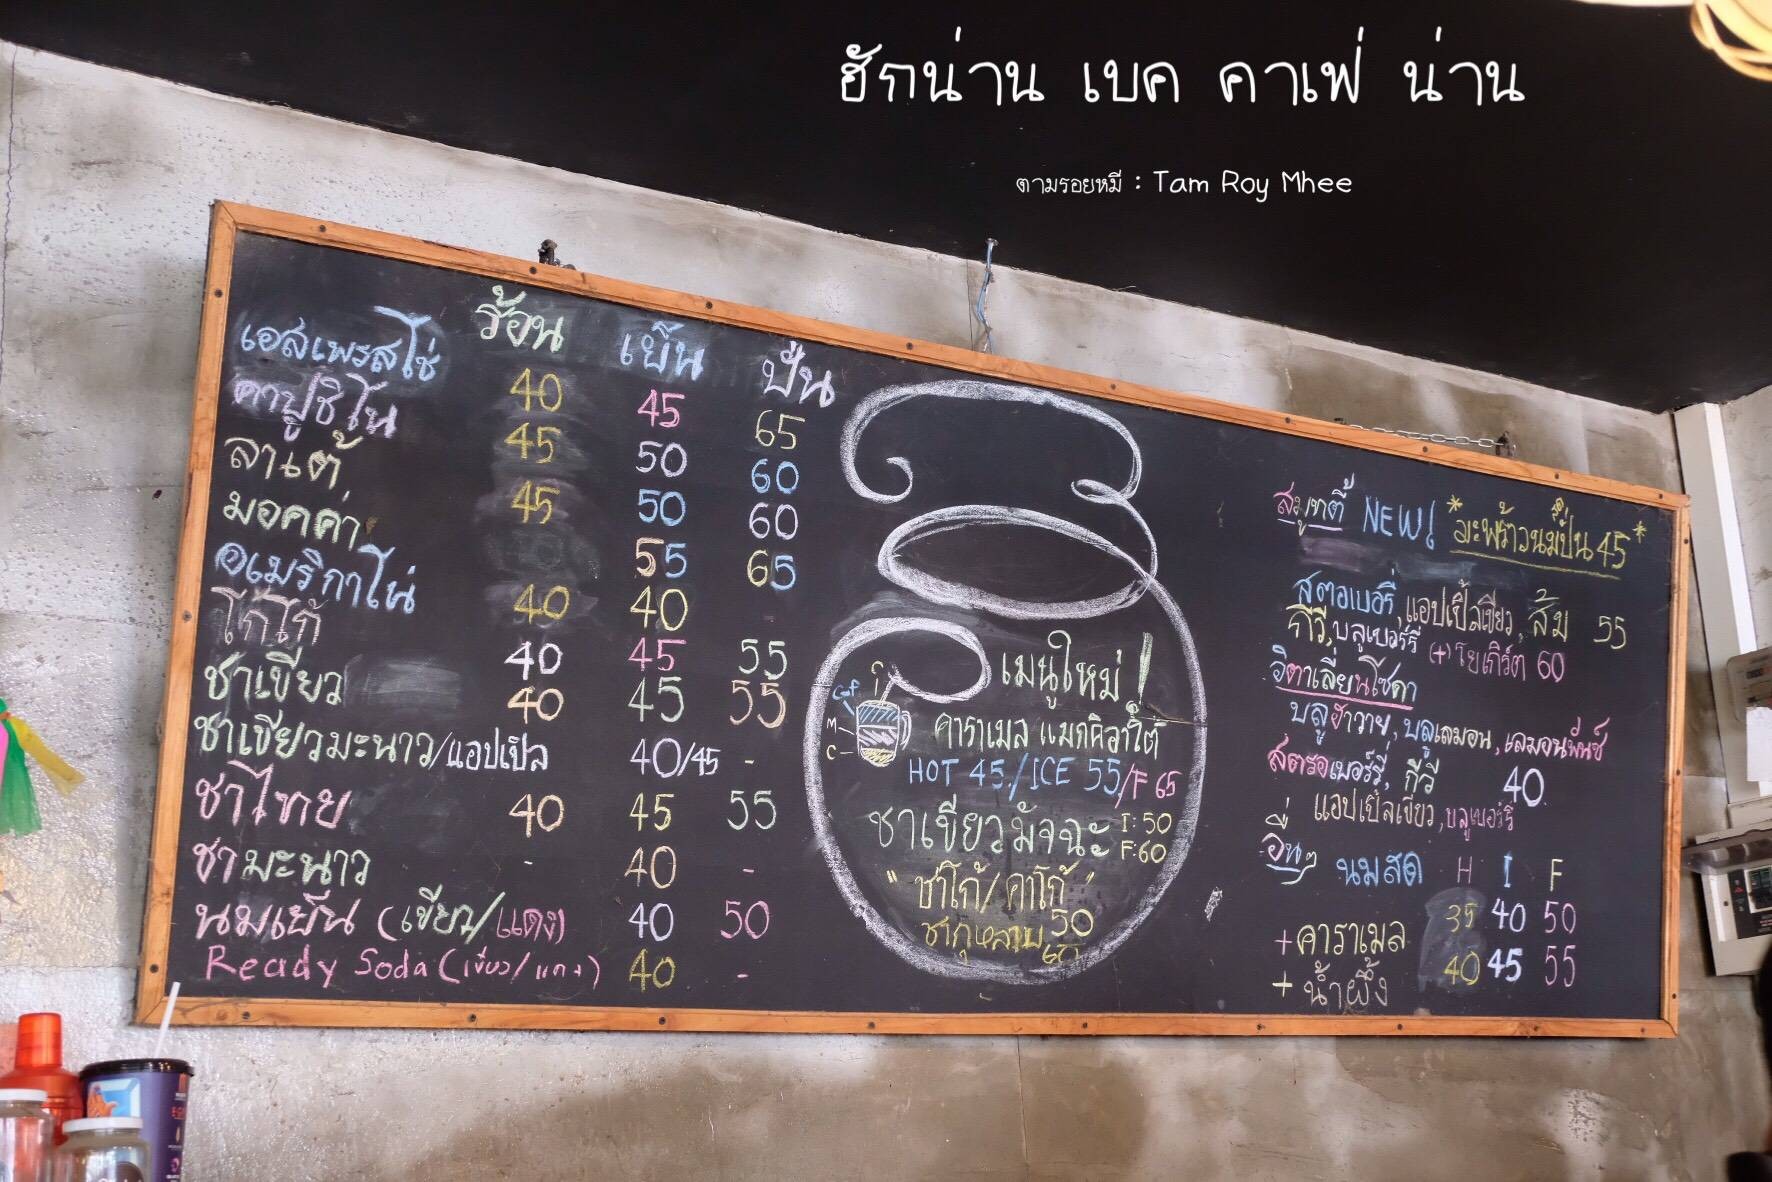 ฮักน่าน เบค คาเฟ่ น่าน
ตามรอยหมี : Tam Roy Mhee
ร้อน เย็น ปั่น
เอสเพรสโซ่ 40 45 65
คาปูชิโน 45 50 60
ลาเต้ 45 50 60
มอคค่า 55 65
อเมริกาโน่ 40 40
โก้โก้ 40 45 55
ชาเขียว 40 45 55
ชาเขียวมะนาว/แอปเปิล 40/45 -
ชาไทย 40 45 55
ชามะนาว - 40 -
นมเย็น (เขียว/แดง) 40 50
Ready Soda (เขียว/แดง) 40 -
เมนูใหม่!
Cof
M
C
คาราเมล แมกคิอาโต้
HOT 45./ICE 55/F 65
ชาเขียวมัจฉะ I:50
F:60
"ชาโก้/คาโก้"
50
ชากุหลาบ 60
สมูทตี้ NEW! *มะพร้าวนมปั่น 45*
สตอเบอรี่, แอปเปิ้ลเขียว, ส้ม 55
กีวี, บลูเบอร์รี่ (+) โยเกิร์ต 60
อิตาเลี่ยนโซดา
บลูฮาวาย, บลูเลมอน, เลมอนพันช์
สตรอเบอร์รี่, กีวี 40
แอปเปิ้ลเขียว, บลูเบอร์รี่
อื่นๆ นมสด H I F
35 40 50
+คาราเมล 40 45 55
+ น้ำผึ้ง